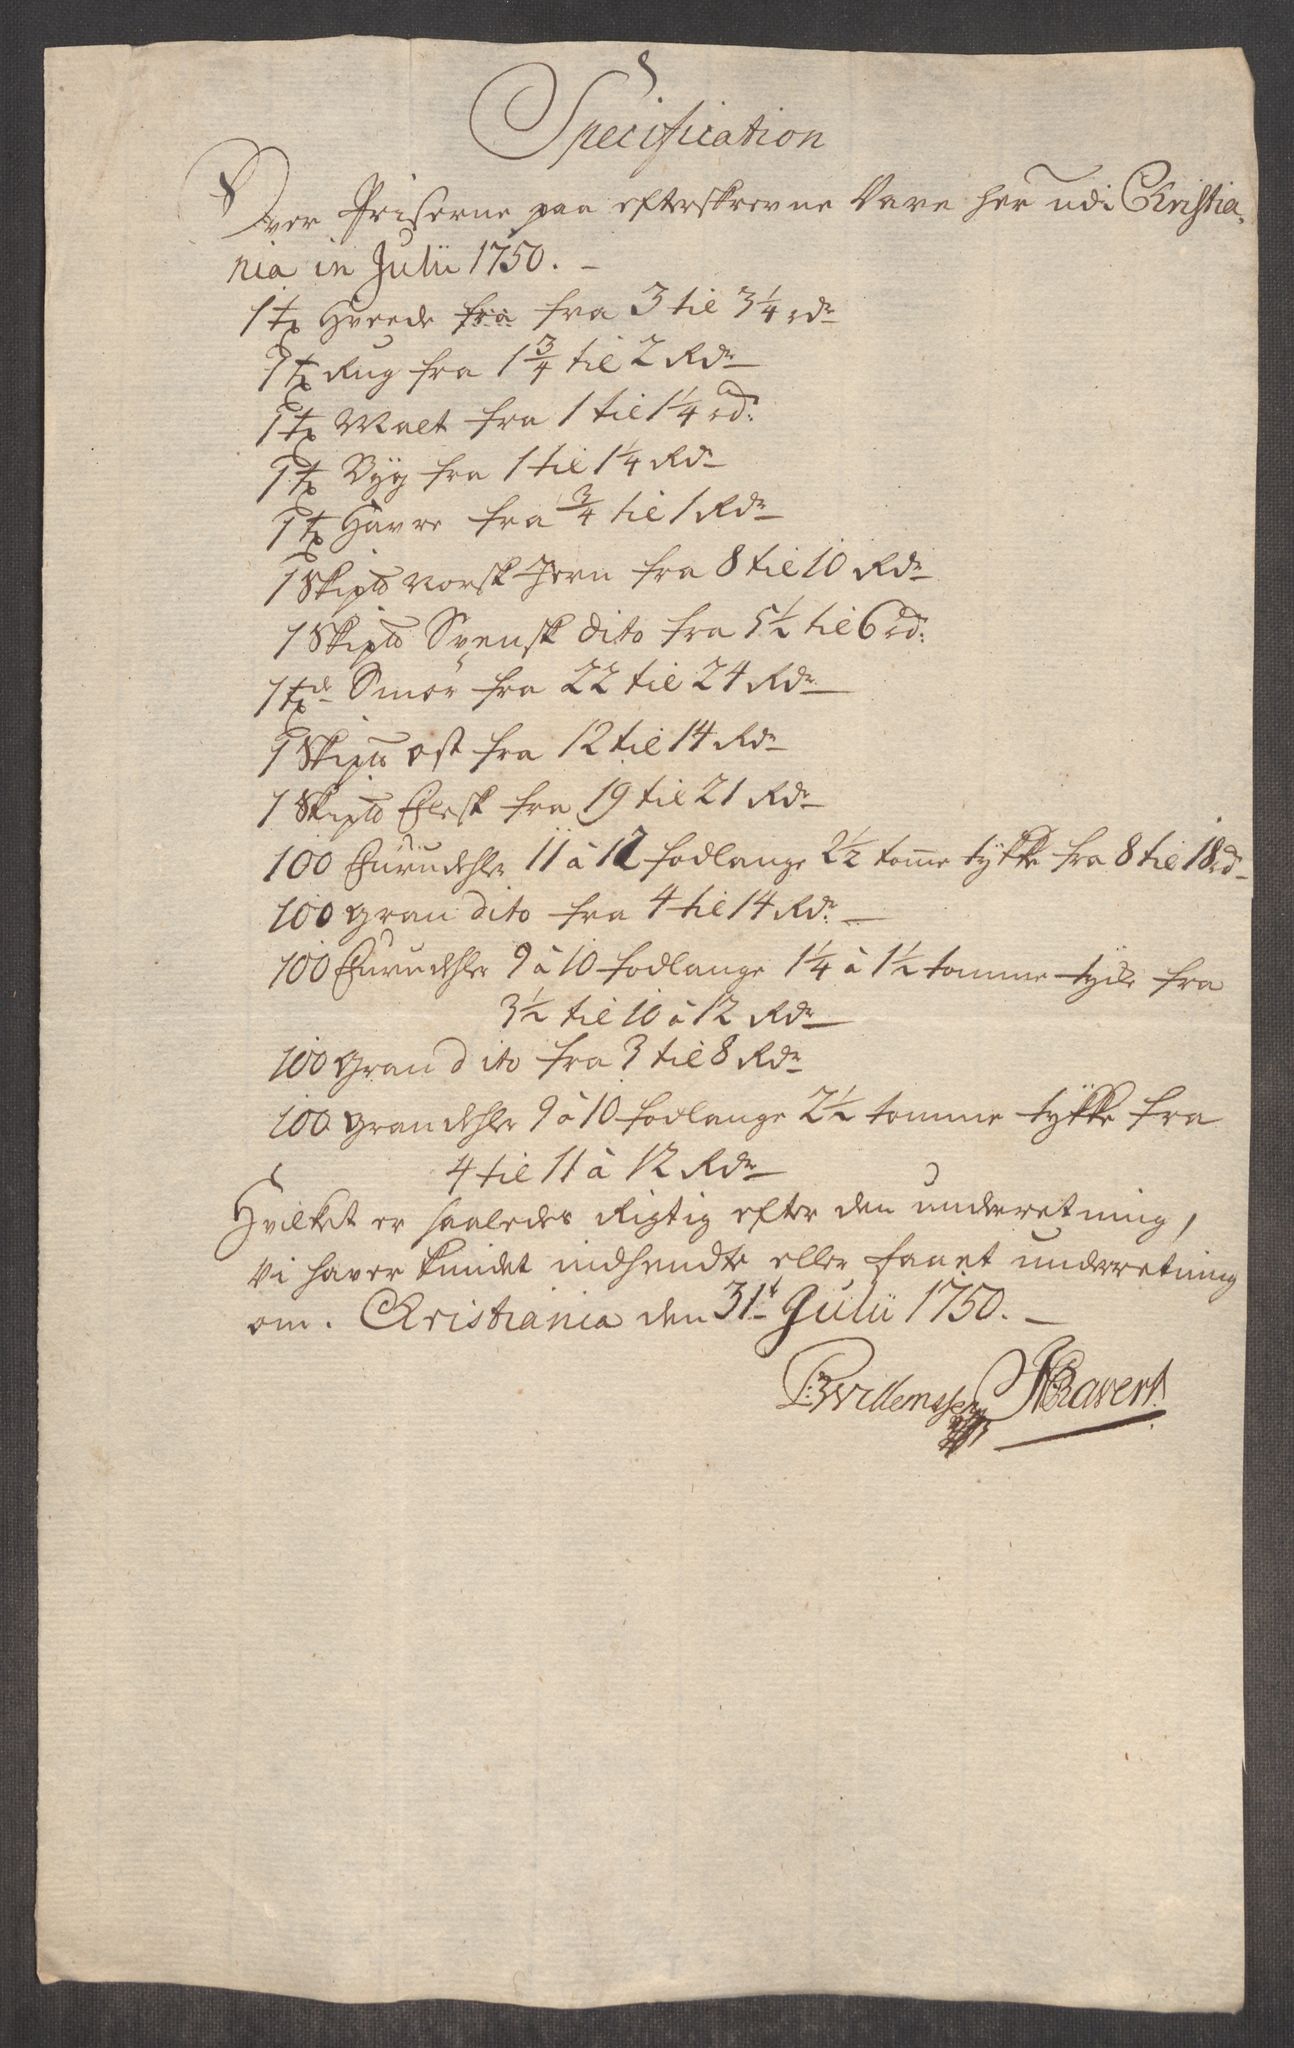 Specification
Over Priserne paa efterskrevne Vare her udi Christia,
nia in Julii 1750. -
1 tꝭ Hveede fra fra 3 til 3¼ rdr
1 tꝭ Rug fra 1¾ til 2 Rdr
1 tꝭ Malt fra 1 til 1¼ rd:
1 tꝭ Byg fra 1 til 1¼ Rdr
1 tꝭ Havre fra ¾ til 1 Rdr
1 Skipd Norsk Jern fra 8 til 10 Rdr
1 Skipd Svensk dito fra 5½ til 6 rd:
1 tde Smör fra 22 til 24 Rdr
1 Skipd ost fra 12 til 14 Rdr
1 Skipd Flesk fra 19 til 21 Rdr
100 Furudehler 11 à 12 fodlange 2½ tomme tÿkke fra 8 til 18 rd
100 gran dito fra 4 til 14 Rdr. -
100 Furudehler 9 à 10 fodlange 1¼ à 1½ tomme fra
3½ til 10 à 12 Rdr
100 gran dito fra 3 til 8 Rdr
100 grandehler 9 à 10 fodlange 2½ tomme tÿkke fra
4 til 11 à 12 Rdr
Hvilket er saaledes Rigtig efter den underretning,
Vi haver kundet indhendte eller faaet underretning
om. Christiania den 31t Julii 1750. -
Willemssen Ravert.